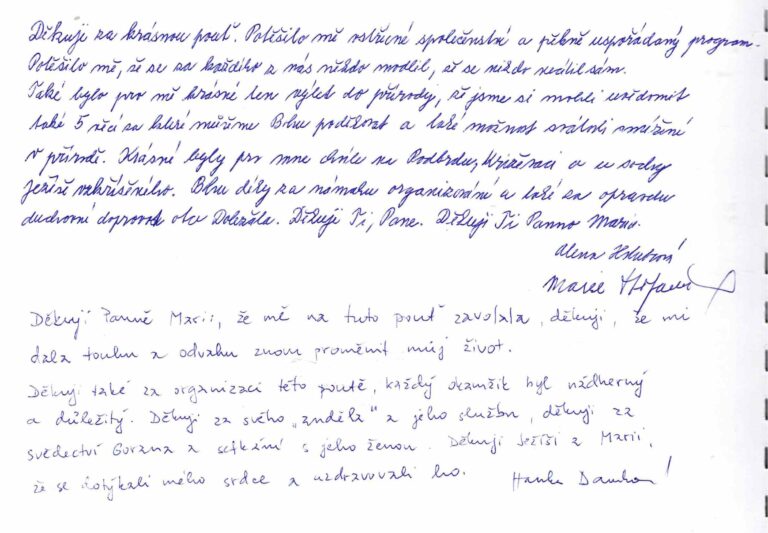 Děkuji za krásnou pouť. Potěšilo mě vstřícné společenství a pěkně uspořádaný program.
Potěšilo mě, že se za každého z nás někdo modlil, ať se nikdo necítil sám.
Také bylo pro mě krásné ten výlet do přírody, že jsme si mohli uvědomit
také 5 věcí za které můžeme Bohu poděkovat a také možnost svátosti smíření
v přírodě. Krásné byly pro mne chvíle na Podbrdu, Križevaci a u sochy
Ježíše vzkříšeného. Bohu díky za námahu organizování a také za opravdu
duchovní doprovod otce Doležala. Děkuji Ti, Pane. Děkuji Ti Panno Maria.
Alena
Marie
Děkuji Panně Marii, že mě na tuto pouť zavolala, děkuji, že mi
dala touhu a odvahu znovu proměnit můj život.
Děkuji také za organizaci této poutě, každý okamžik byl nádherný
a důležitý. Děkuji za svého „anděla" a jeho službu, děkuji za
svědectví Gorana a setkání s jeho ženou. Děkuji Ježíši a Marii,
že se dotýkali mého srdce a uzdravovali ho. Hanka